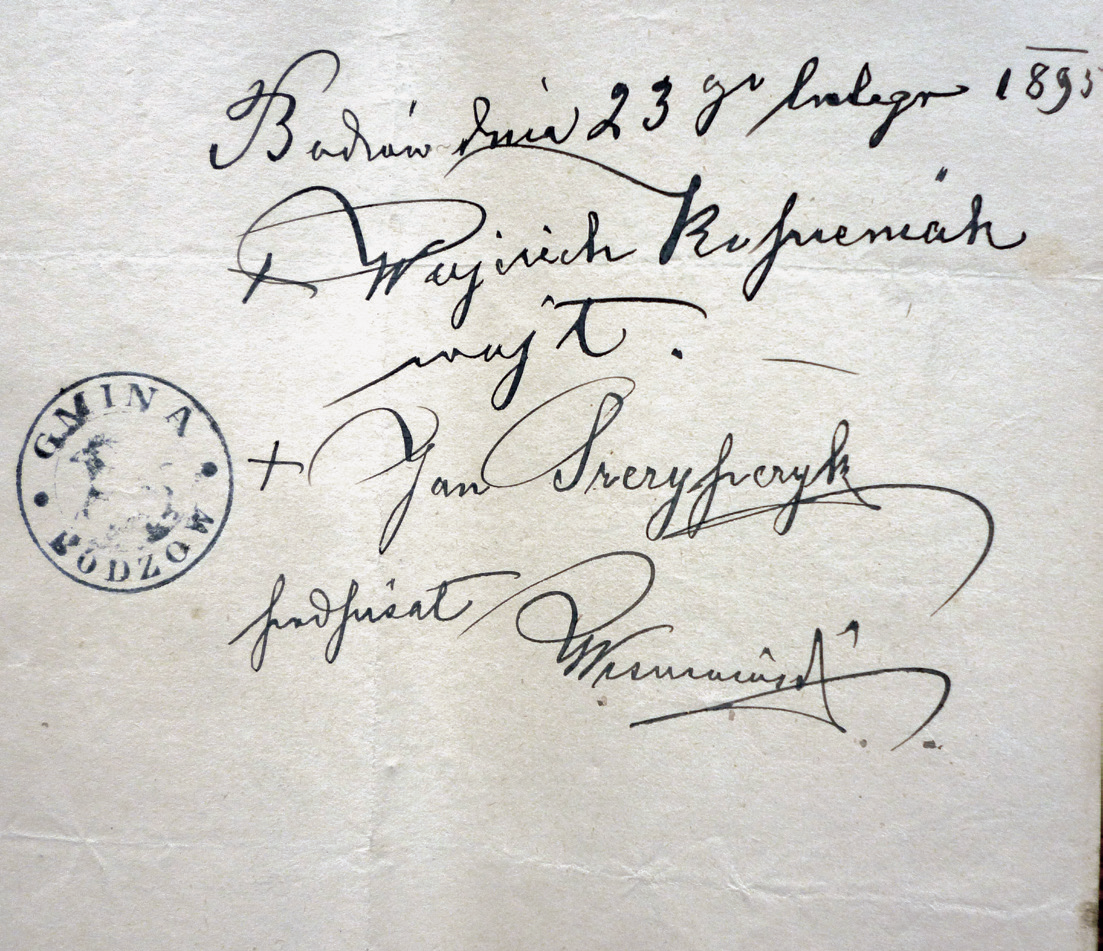 Bodzów dnia 23 go lutego 1895
+ Wojciech Kasprzniak
wójt.
GMINA
BODZÓW
+ Jan Szczypczyk
podpisał Wiśniowski